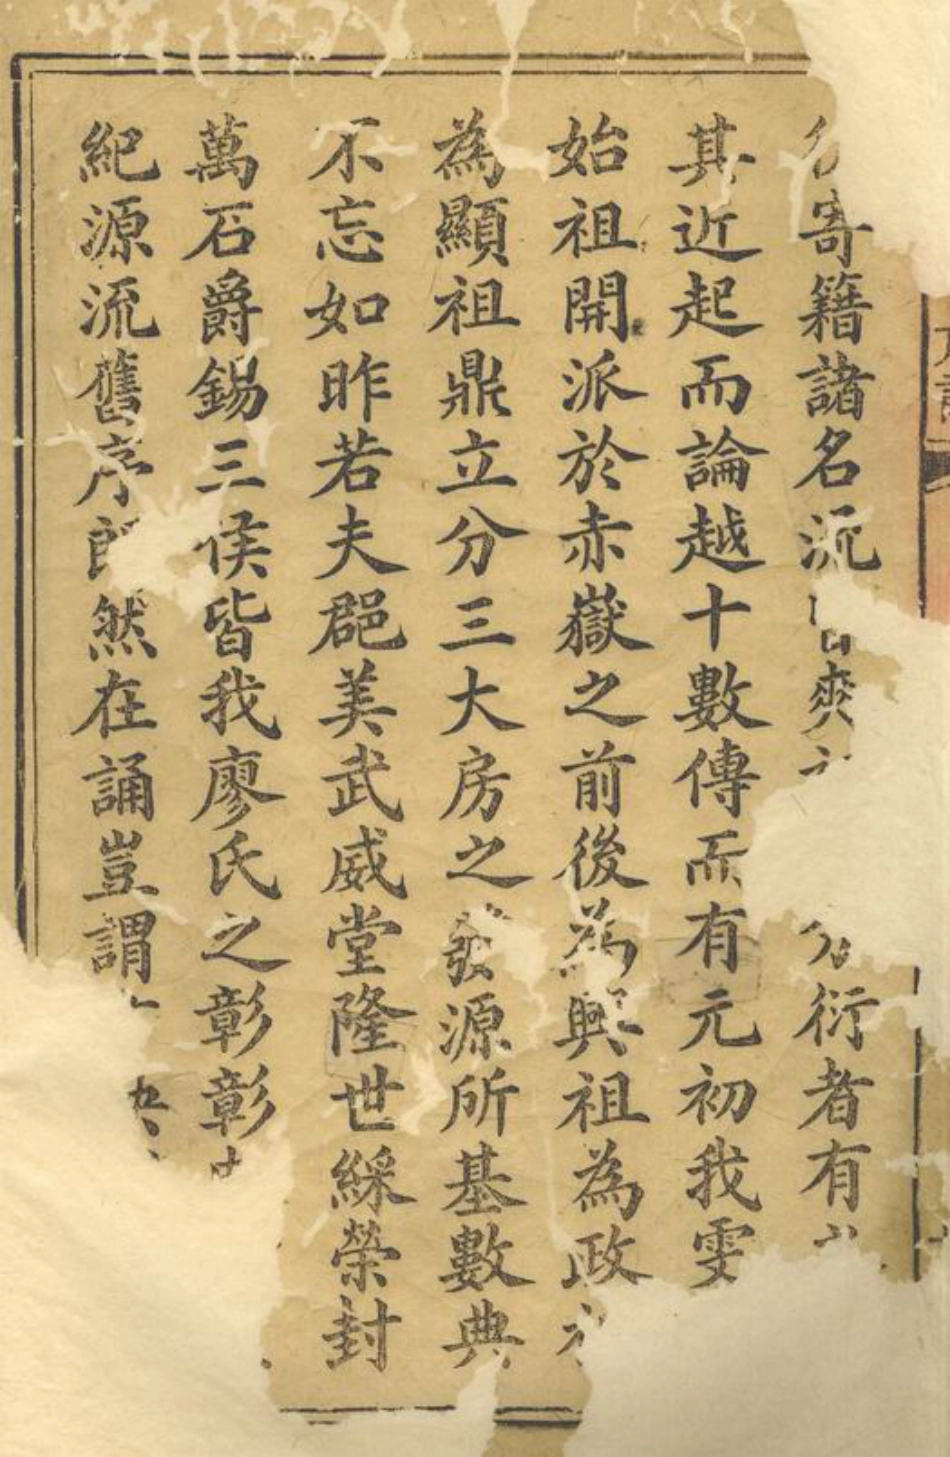 寄籍諸名派爽衍者有
其近起而論越十數傳而有元初我雯
始祖開派於赤嶽之前後為興祖為政
為顯祖鼎立分三大房之發源所基數典
不忘如昨若夫郡美武威堂隆世綵榮封
萬石爵錫三侯皆我廖氏之彰彰
紀源流舊序然在誦豈謂